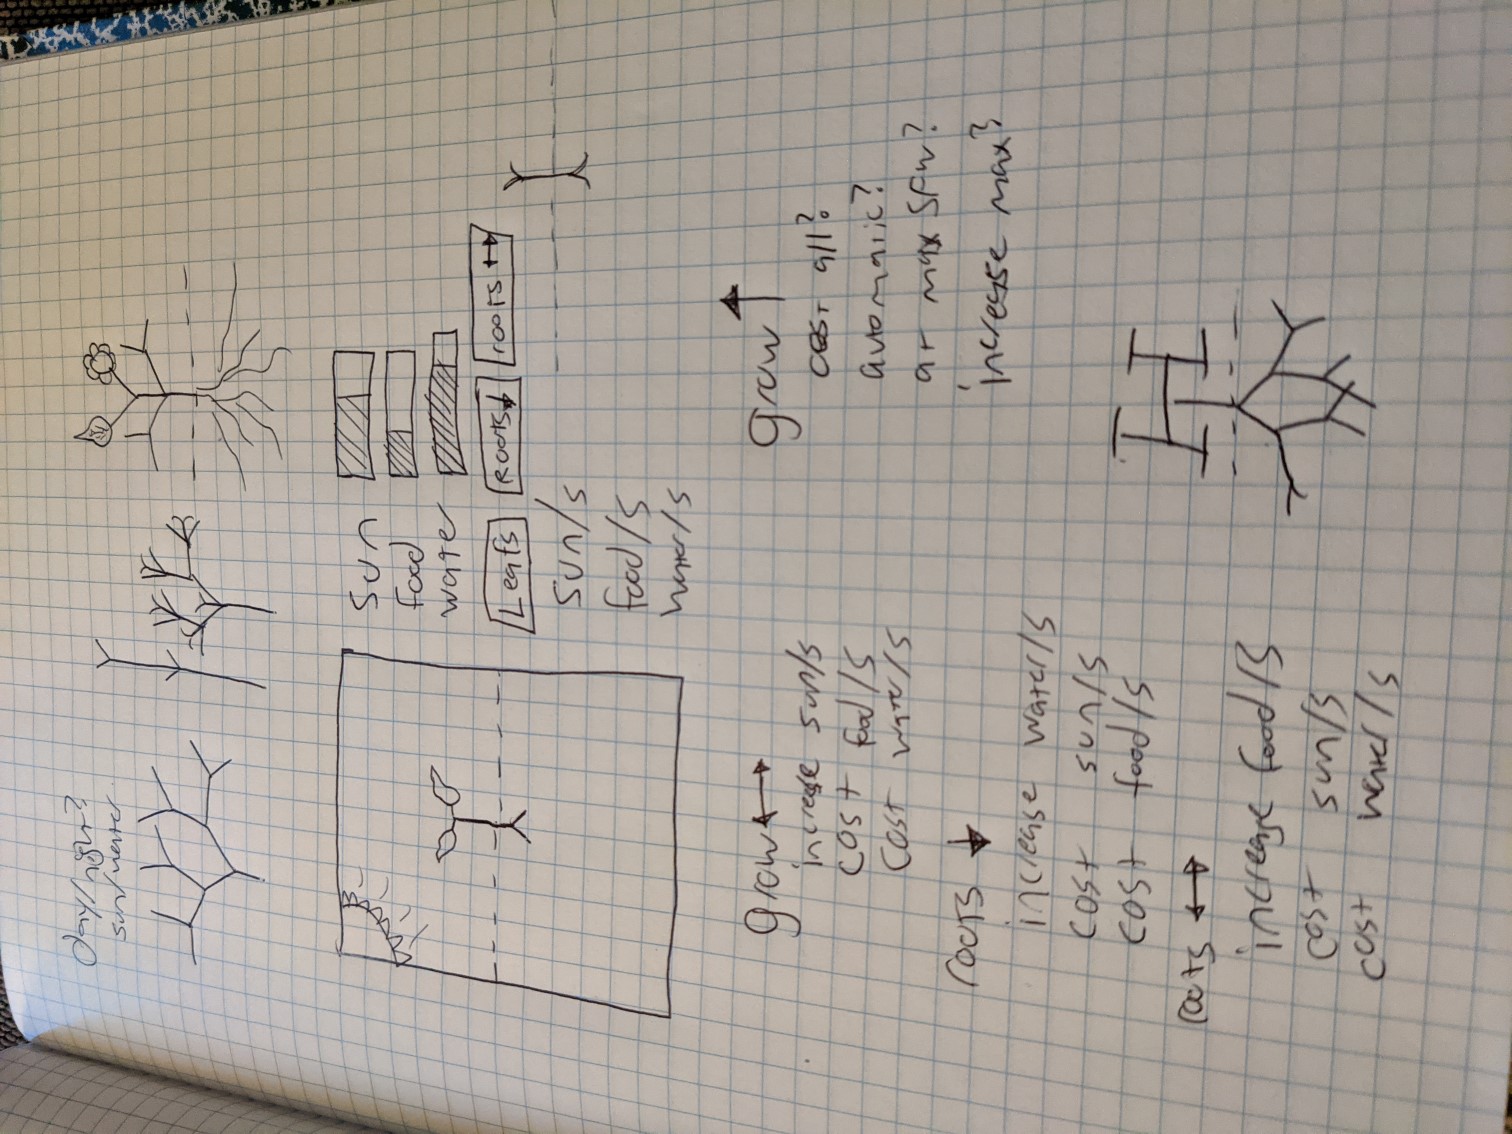 day/night?
sun/water
Sun
food
water
Leafs
Roots↓
roots ↔
Sun/s
food/s
Water/s
grow ↔
increase sun/s
cost food/s
cost water/s
grow ↑
cost all?
automatic?
at max SFW?
increase max?
roots ↓
increase water/s
cost sun/s
cost food/s
roots ↔
increase food/s
cost sun/s
cost water/s